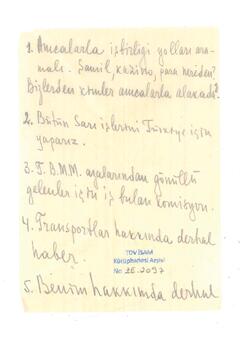 1. Amcalarla işbirliği yolları ara-
malı. Şamil, Kâzım, para nereden?
Bizlerden kimler amcalarla alakadar?
2. Bütün Sarı işlerini Türkiye için
yaparız.
3. T.B.M.M. azalarından gönüllü
gelenler için iş bulan komisyon.
4. Transportlar hakkında derhal
haber.
TDV İSAM
Kütüphanesi Arşivi
No 2E.2097
5. Benim hakkımda derhal